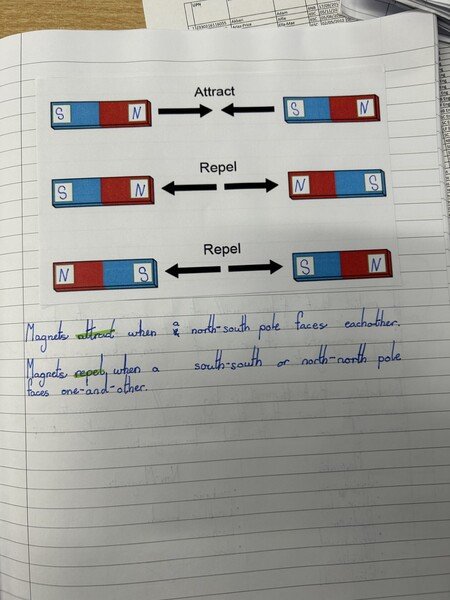 UPN
Attract
S N S N
Repel
S N N S
Repel
N S S N
Magnets attract when a north-south pole faces eachother.
Magnets repel when a south-south or north-north pole
faces one-and-other.